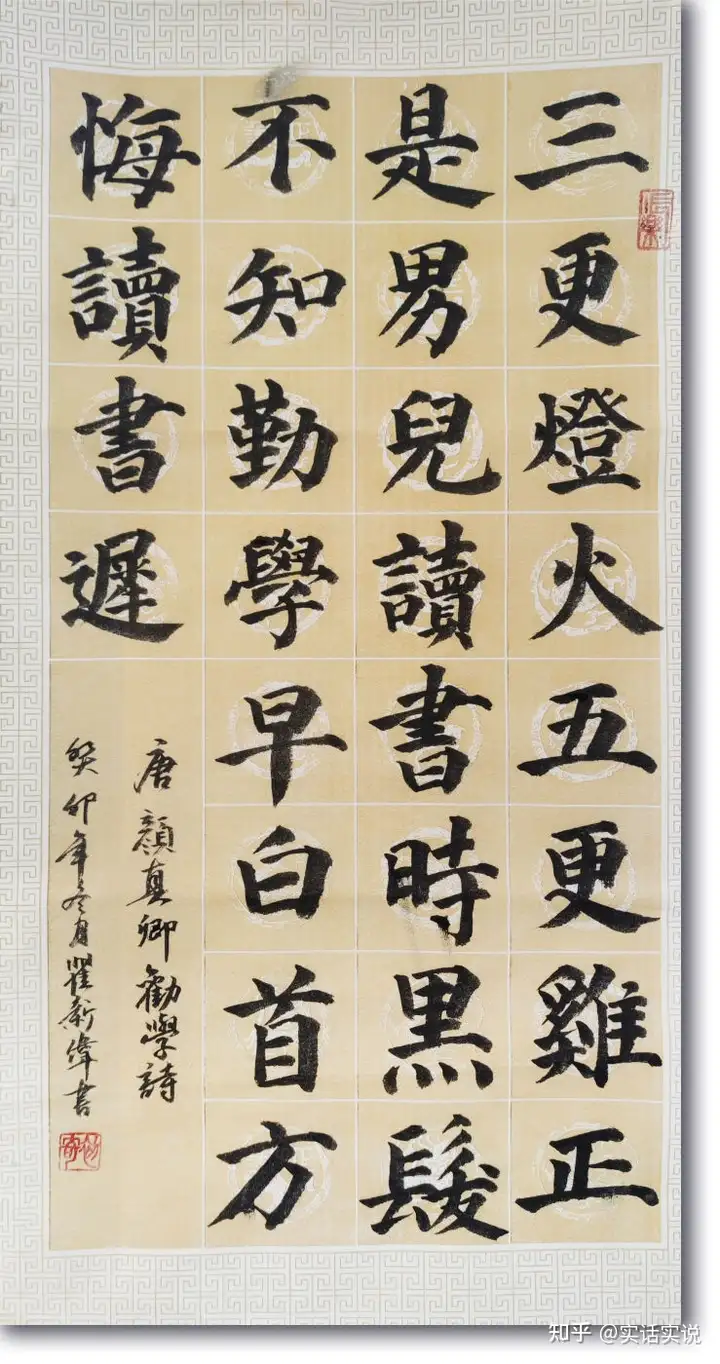 三更燈火五更雞正
是男兒讀書時黑髮
不知勤學早白首方
悔讀書遲
唐顏真卿勸學詩
癸卯年冬月瞿新緯書
知乎 @实话实说